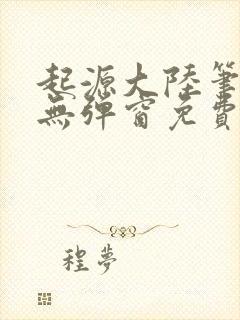 起源大陸筆
無彈窗免費
程夢